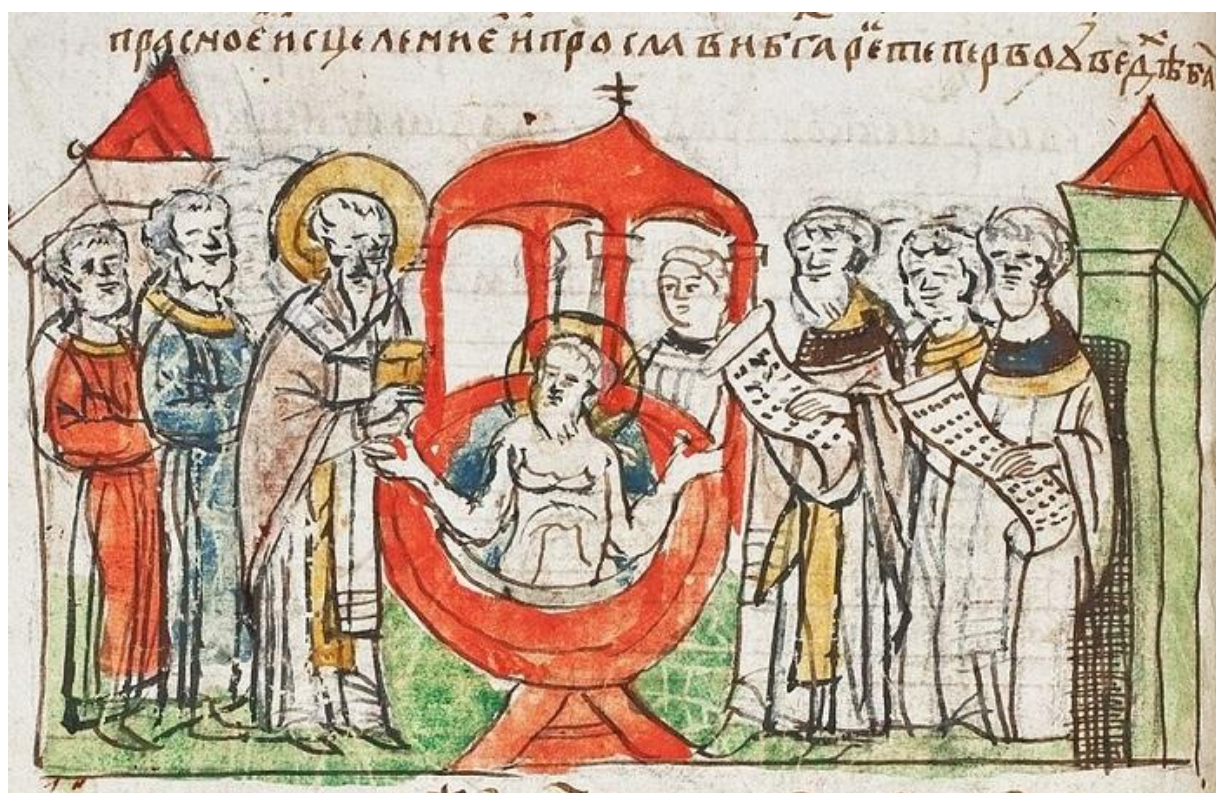 прасноє исцелениє и прослави бга реⷱ теперво ꙋведѣⷯ ба